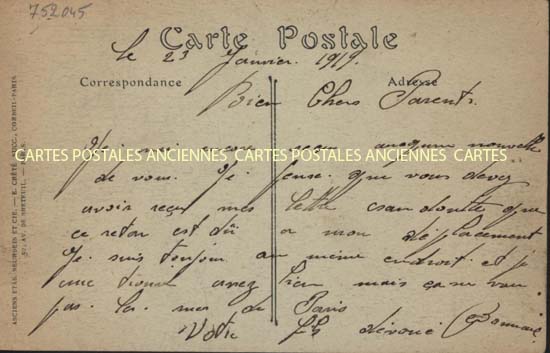 752045
Carte Postale
le 23 Janvier 1919.
Correspondance
Adresse
Bien Chers Parents.
Je n'ai encore reçu aucune nouvelle
CARTES POSTALES ANCIENNES CARTES POSTALES ANCIENNES CARTES
de vous. Je pense que vous devez
avoir reçu mes lettre sans doute que
ce retar est dû a mon déplacement
Je suis toujour au même endroit et je
me trouve assez bien mais ça ne vau
pas les mes de Paris
Votre fils dévoué
ANCIENS ETAB. NEURDEIN ET CIE. — E. CRÉTÉ, SUCC., CORBEIL-PARIS
52, AV. DE BRETEUIL.